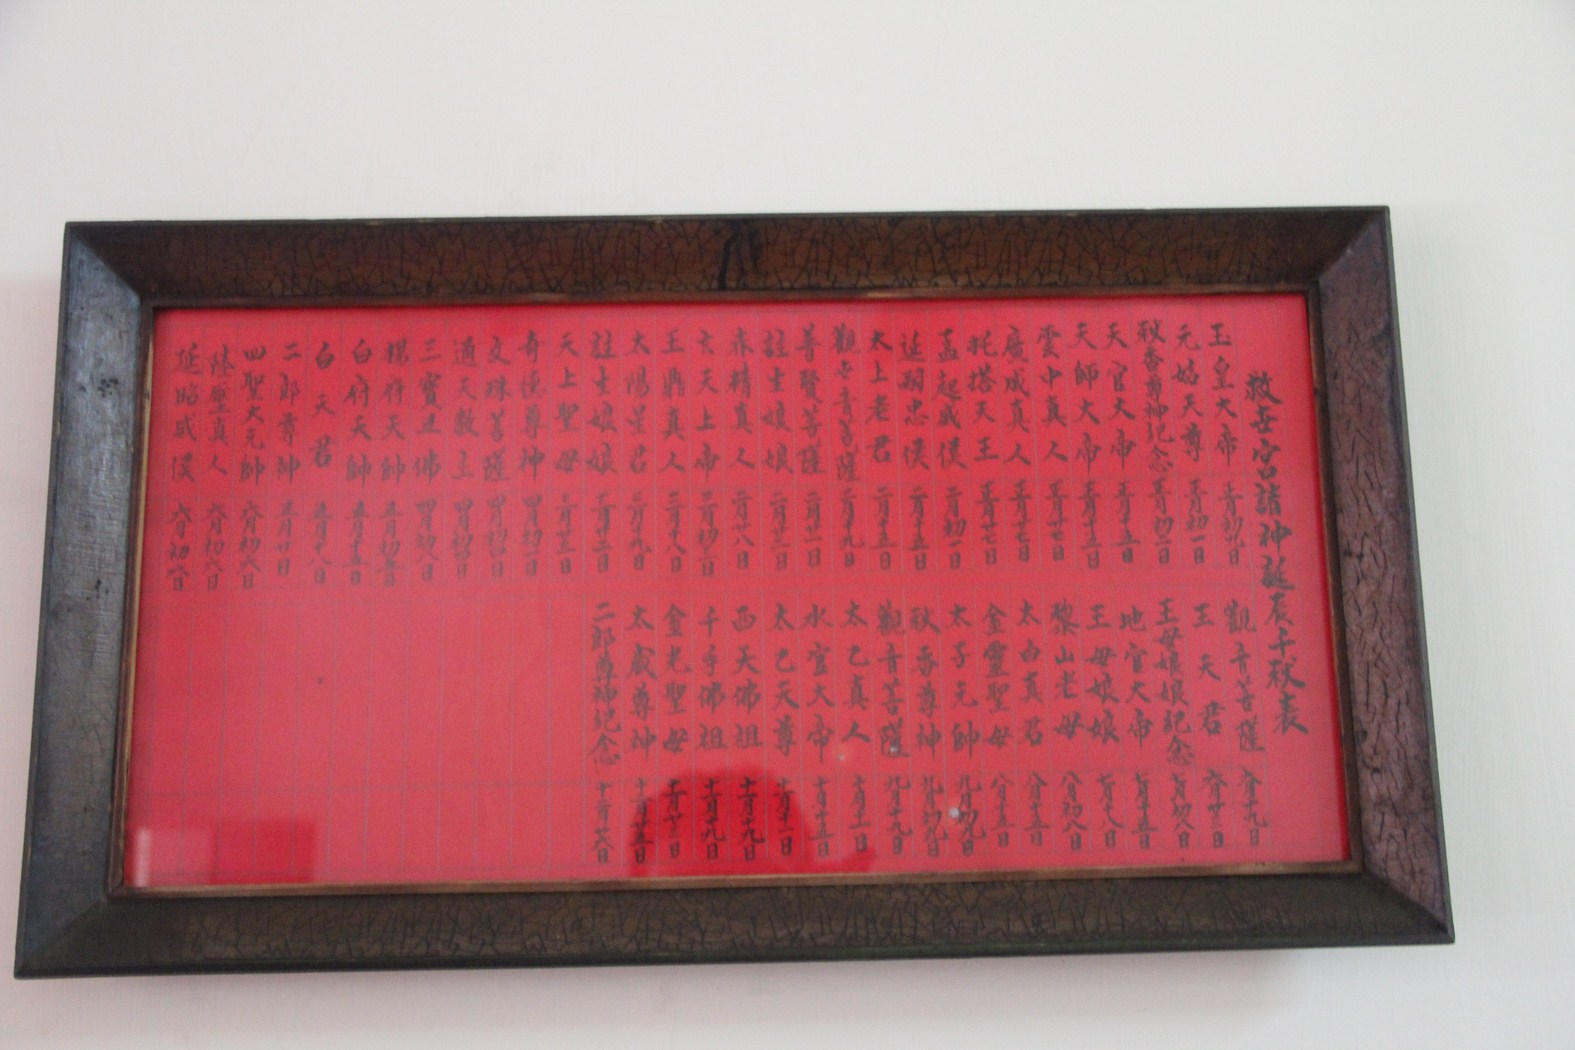 救世宮諸神誕辰千秋表
玉皇大帝 正月初九日
元始天尊 正月初一日
秋香尊神紀念 正月初二日
天官大帝 正月十五日
天師大帝 正月十五日
雲中真人 正月廿七日
廣成真人 正月廿七日
托搭天王 正月十七日
孟起威侯 二月初一日
延嗣忠侯 二月十五日
太上老君 二月十五日
觀世音菩薩 二月十九日
普賢菩薩 二月廿一日
註生娘娘 二月廿二日
赤精真人 二月廿八日
玄天上帝 三月初三日
玉鼎真人 三月十八日
太陽星君 三月十九日
註生娘娘 三月廿三日
天上聖母 三月廿三日
奇德尊神 四月初一日
文珠菩薩 四月初四日
通天教主 四月初四日
三寶丑佛 四月初八日
楊府天帥 五月初五日
白府天帥 五月十五日
白天君 五月十八日
二郎尊帥 五月廿日
四聖大元帥 六月初六日
陸壓真人 六月初六日
延昭威侯 六月初六日
觀音菩薩 六月十九日
王天君 六月廿三日
王母娘娘紀念 七月初八日
地官大帝 七月十五日
王母娘娘 七月十八日
黎山老母 八月初八日
太白真君 八月十五日
金靈聖母 八月十五日
太子元帥 九月初九日
秋香尊神 九月初九日
觀音菩薩 九月十九日
太乙真人 十月十一日
水官大帝 十月十五日
太乙天尊 十一月十一日
西天佛祖 十一月十九日
千手佛祖 十一月十九日
金光聖母 十一月廿三日
太歲尊神 十二月十五日
二郎尊神紀念 十二月廿八日